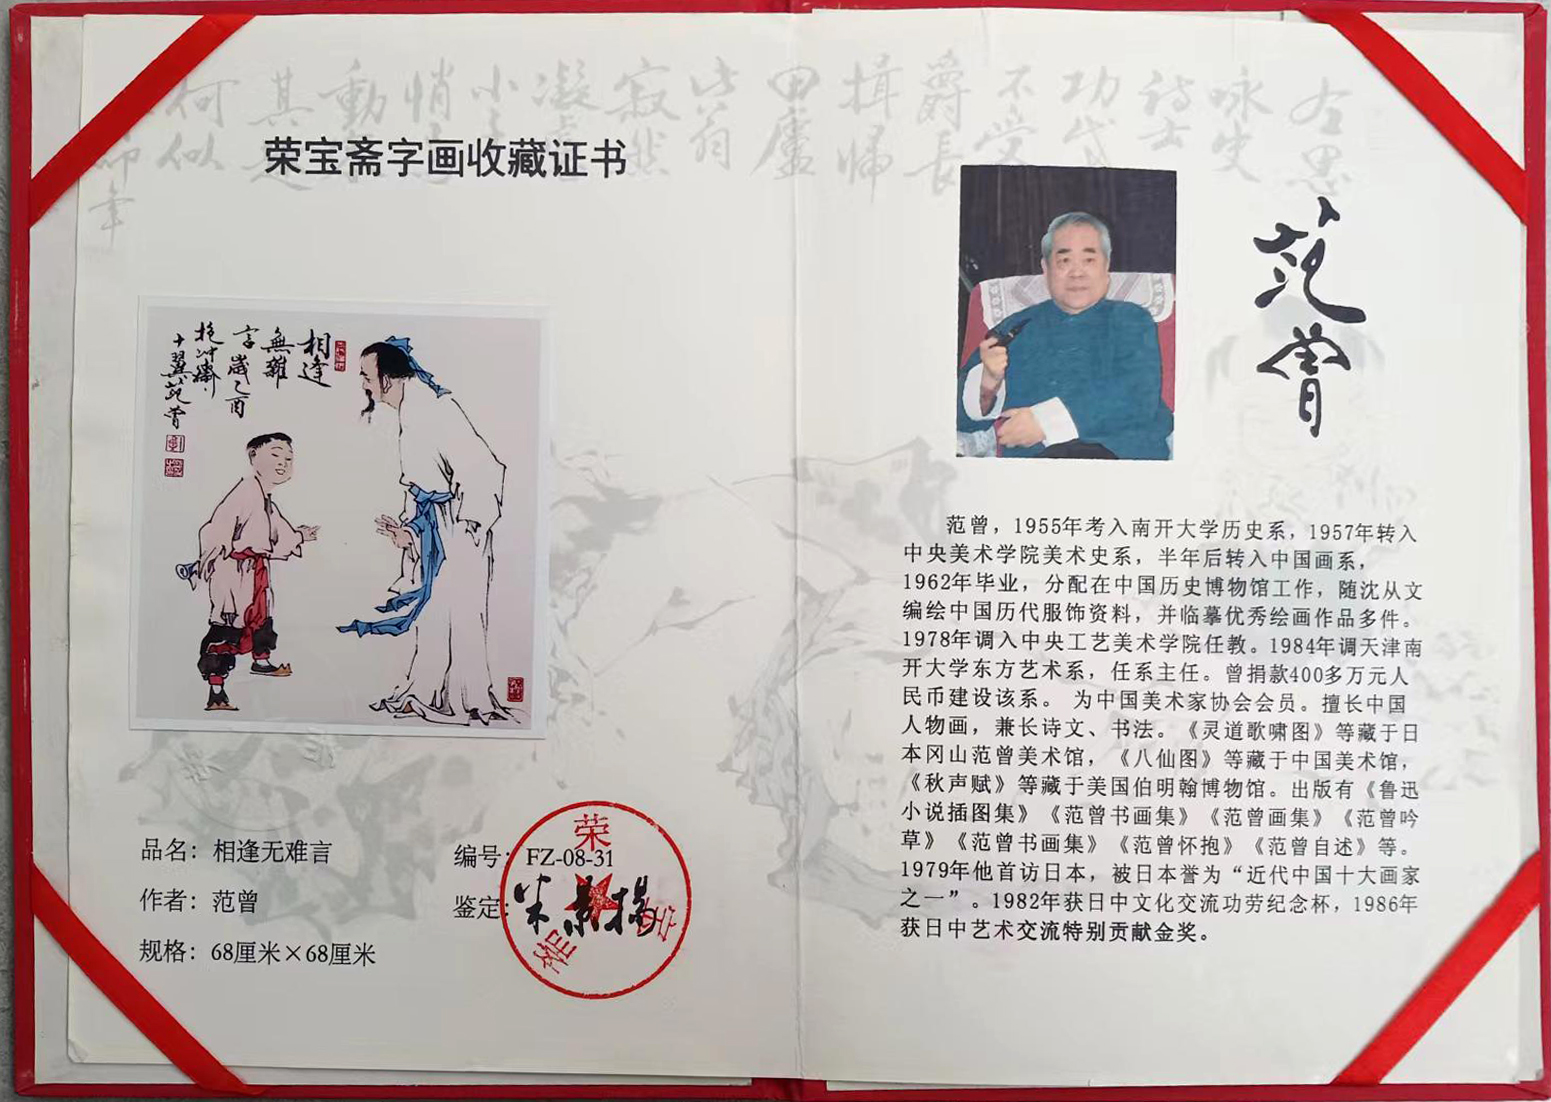 荣宝斋字画收藏证书
相逢
無難
言歲乙酉
抱冲齋
十翼范曾
品名：相逢无难言
作者：范曾
规格：68厘米×68厘米
编号：FZ-08-31
鉴定：
荣
宝
斋
范曾
范曾，1955年考入南开大学历史系，1957年转入
中央美术学院美术史系，半年后转入中国画系，
1962年毕业，分配在中国历史博物馆工作，随沈从文
编绘中国历代服饰资料，并临摹优秀绘画作品多件。
1978年调入中央工艺美术学院任教。1984年调天津南
开大学东方艺术系，任系主任。曾捐款400多万元人
民币建设该系。 为中国美术家协会会员。擅长中国
人物画，兼长诗文、书法。《灵道歌啸图》等藏于日
本冈山范曾美术馆，《八仙图》等藏于中国美术馆，
《秋声赋》等藏于美国伯明翰博物馆。出版有《鲁迅
小说插图集》《范曾书画集》《范曾画集》《范曾吟
草》《范曾书画集》《范曾怀抱》《范曾自述》等。
1979年他首访日本，被日本誉为“近代中国十大画家
之一”。1982年获日中文化交流功劳纪念杯，1986年
获日中艺术交流特别贡献金奖。